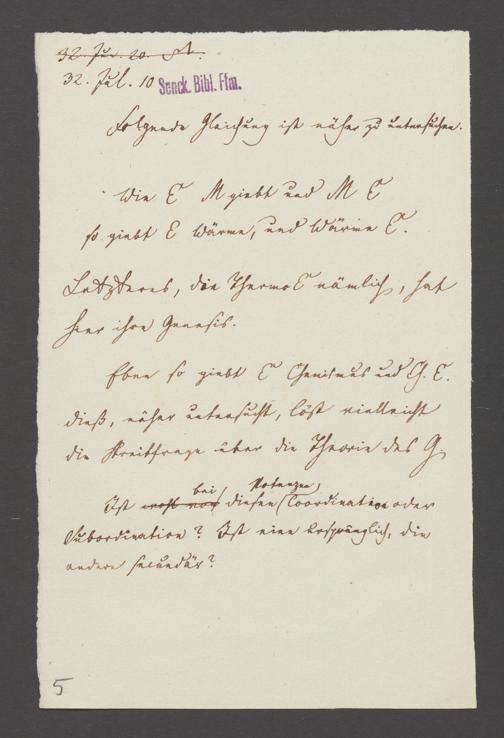 32. Jul. 10
Senck. Bibl. Ffm.
Folgende Gleichung ist näher zu untersuchen.
Wie E M giebt und M E
so giebt E Wärme, und Wärme E.
Letzteres, die Thermo E nämlich, hat
hier ihre Genesis.
Eben so giebt E Chemismus und Ch. E.
dieß, näher untersucht, löst vielleicht
die Streitfrage über die Theorie des G
bei Potenzen,
Ist diesen Coordination oder
Subordination? Ist eine ursprünglich, die
andere secundär?
5